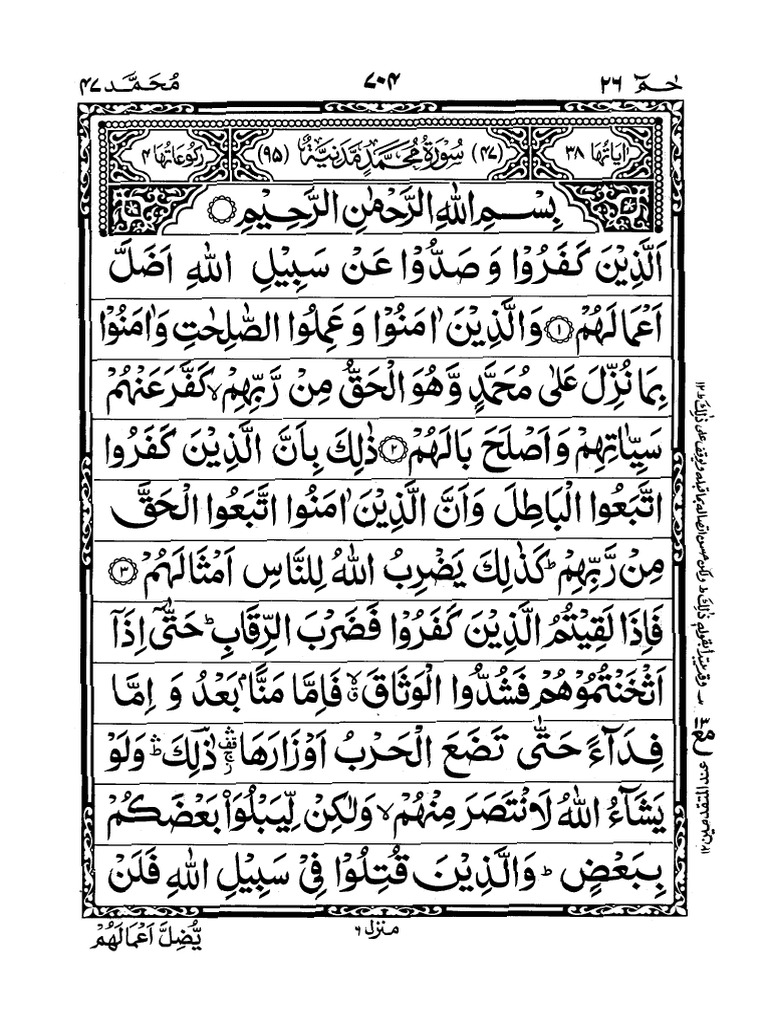 حٰمٓ ٢٦
٧٠٤
مُحَمَّد ٤٧
اٰيَاتُهَا ٣٨
(٤٧) سُوْرَةُ مُحَمَّدٍ مَّدَنِيَّةٌ (٩٥)
رُكُوْعَاتُهَا ٤
بِسْمِ اللهِ الرَّحْمٰنِ الرَّحِيْمِ ○
اَلَّذِيْنَ كَفَرُوْا وَ صَدُّوْا عَنْ سَبِيْلِ اللهِ اَضَلَّ
اَعْمَالَهُمْ ۝١ وَالَّذِيْنَ اٰمَنُوْا وَ عَمِلُوا الصّٰلِحٰتِ وَاٰمَنُوْا
بِمَا نُزِّلَ عَلٰى مُحَمَّدٍ وَّهُوَ الْحَقُّ مِنْ رَّبِّهِمْ ۙ كَفَّرَ عَنْهُمْ
سَيِّاٰتِهِمْ وَاَصْلَحَ بَالَهُمْ ۝٢ ذٰلِكَ بِاَنَّ الَّذِيْنَ كَفَرُوا
اتَّبَعُوا الْبَاطِلَ وَاَنَّ الَّذِيْنَ اٰمَنُوا اتَّبَعُوا الْحَقَّ
مِنْ رَّبِّهِمْ ؕ كَذٰلِكَ يَضْرِبُ اللهُ لِلنَّاسِ اَمْثَالَهُمْ ۝٣
فَاِذَا لَقِيْتُمُ الَّذِيْنَ كَفَرُوْا فَضَرْبَ الرِّقَابِ ؕ حَتّٰٓى اِذَآ
اَثْخَنْتُمُوْهُمْ فَشُدُّوا الْوَثَاقَ ۙ فَاِمَّا مَنًّۢا بَعْدُ وَ اِمَّا
فِدَآءً حَتّٰى تَضَعَ الْحَرْبُ اَوْزَارَهَا ۛۚ ذٰلِكَ ؕۛ وَلَوْ
يَشَآءُ اللهُ لَانْتَصَرَ مِنْهُمْ ۙ وَلٰكِنْ لِّيَبْلُوَا۟ بَعْضَكُمْ
بِبَعْضٍ ؕ وَالَّذِيْنَ قُتِلُوْا فِيْ سَبِيْلِ اللهِ فَلَنْ
منزل ٦
يُّضِلَّ اَعْمَالَهُمْ